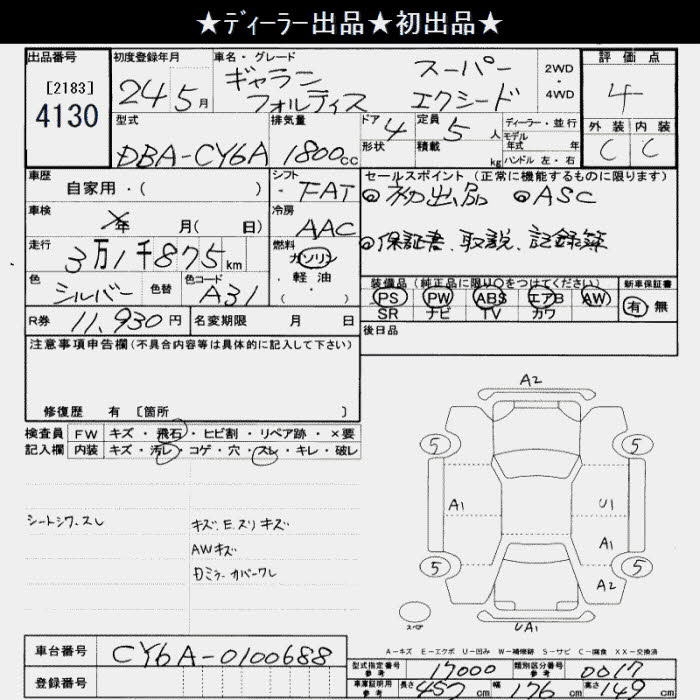 ★ディーラー出品★初出品★
出品番号
[2183]
4130
初度登録年月
24 5月
車名・グレード
ギャラン
フォルティス
スーパー
エクシード
2WD
・
4WD
評価点
4
外装 内装
C C
型式
DBA-CY6A
排気量
1800cc
ドア
4
形状
定員
5人
積載
kg
ディーラー・並行
モデル
年式 年
ハンドル 左・右
車歴
自家用・( )
シフト
FAT
セールスポイント(正常に機能するものに限ります)
◎初出品 ◎ASC
◎保証書、取説、記録簿
車検
年 月( 日)
冷房
AAC
走行
3万1千875km
燃料
ガソリン
・軽油・
( )
色
シルバー
色替
色コード
A31
装備品(純正品に限り○をつけてください)
PS PW ABS エアB AW
SR ナビ TV カワ
新車保証書
有・無
R券 11,930円
名変期限 月 日
後日品
注意事項申告欄(不具合内容等は具体的に記入して下さい)
修復歴 有 [箇所 ]
検査員 FW キズ・飛石・ヒビ割・リペア跡・×要
記入欄 内装 キズ・汚レ・コゲ・穴・スレ・キレ・破レ
シートシワ.スレ
キズ.E.スリキズ
AWキズ
カバーワレ
A2
5 5
A1 U1
A1
5 5
A2
UA1
スペア
A-キズ E-エクボ U-凹み W-補修跡 S-サビ C-腐食 XX-交換済
車台番号 CY6A-0100688
登録番号
型式指定番号
参考
17000
類別区分番号
参考
0017
車庫証明用
参考
長さ 457cm 幅 176cm 高さ 149cm